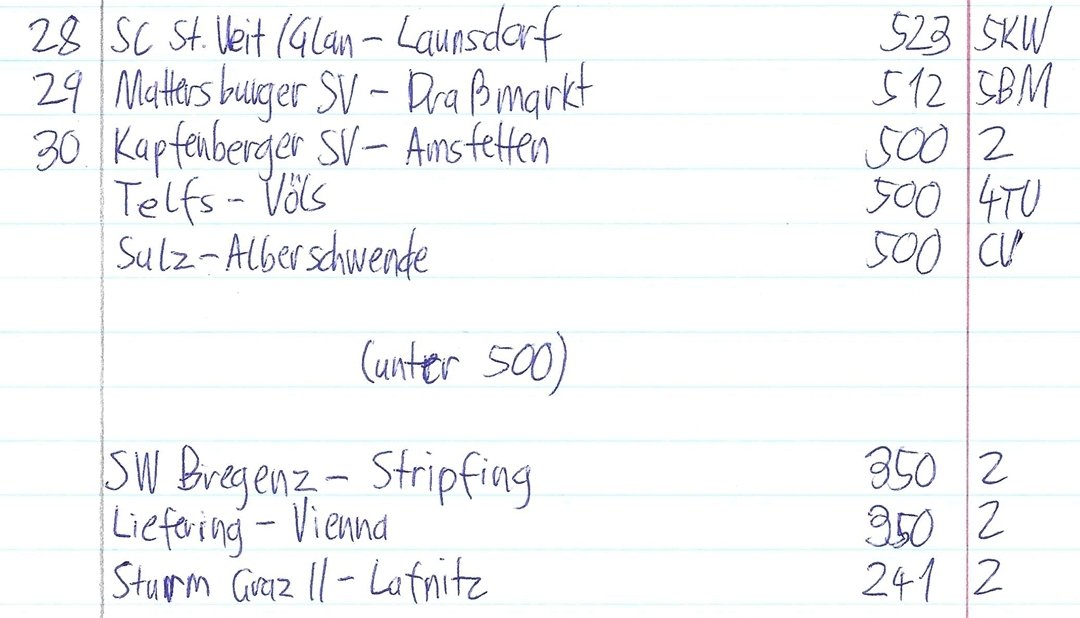 28 SC St. Veit/Glan - Launsdorf 523 5KW
29 Mattersburger SV - Draßmarkt 512 5BM
30 Kapfenberger SV - Amstetten 500 2
Telfs - Völs 500 4TU
Sulz - Alberschwende 500 CV
(unter 500)
SW Bregenz - Stripfing 350 2
Liefering - Vienna 350 2
Sturm Graz II - Lafnitz 241 2